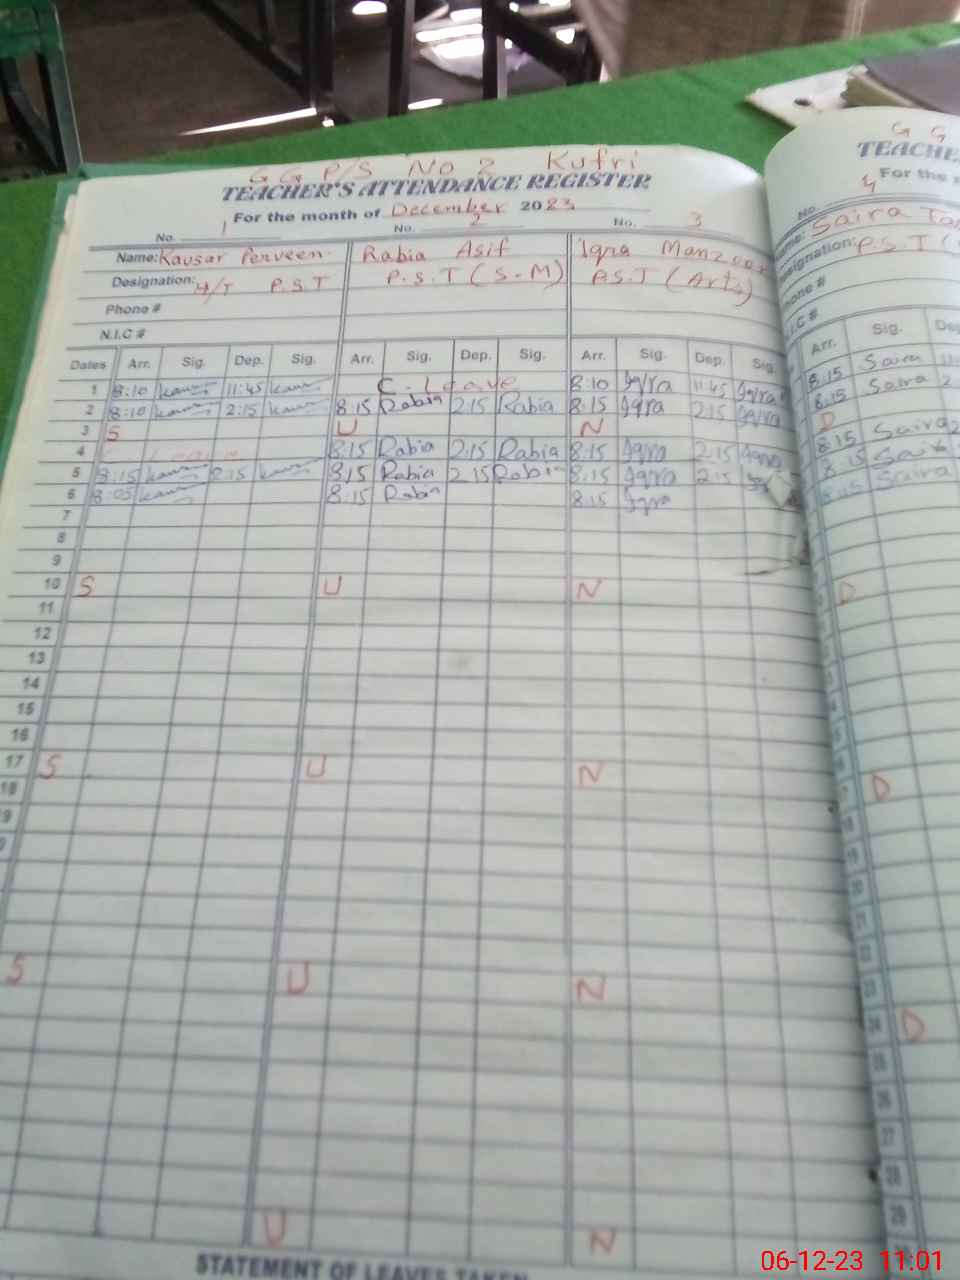 G G P/S NO 2 Kufri
TEACHER'S ATTENDANCE REGISTER
For the month of December 2023
No. 1 No. 2 No. 3
Name: Kausar Perveen Rabia Asif Iqra Manzoor
Designation: H/T P.S.T P.S.T (S-M) P.S.T (Arts)
Phone #
N.I.C #
Dates Arr. Sig. Dep. Sig. Arr. Sig. Dep. Sig. Arr. Sig. Dep. Sig.
1 8:10 11:45 C-Leave 8:10 Iqra 11:45 Iqra
2 8:10 2:15 8:15 Rabia 2:15 Rabia 8:15 Iqra 2:15 Iqra
3 S U N
4 Leave 8:15 Rabia 2:15 Rabia 8:15 Iqra 2:15 Iqra
5 8:15 2:15 8:15 Rabia 2:15 Rabia 8:15 Iqra 2:15
6 8:05 8:15 Rabia 8:15 Iqra
7
8
9
10 S U N
11
12
13
14
15
16
17 S U N
18
S U N
U N
STATEMENT OF LEAVES TAKEN
G G
TEACHE
For the
No. 4
Saira
Designation: P.S.T
Phone #
N.I.C #
Arr. Sig. Dep
8:15 Saira
8:15 Saira 2
D
8:15 Saira 2
8:15 Saira
8:15 Saira
D
D
24 D
25
26
27
28
29
06-12-23 11:01